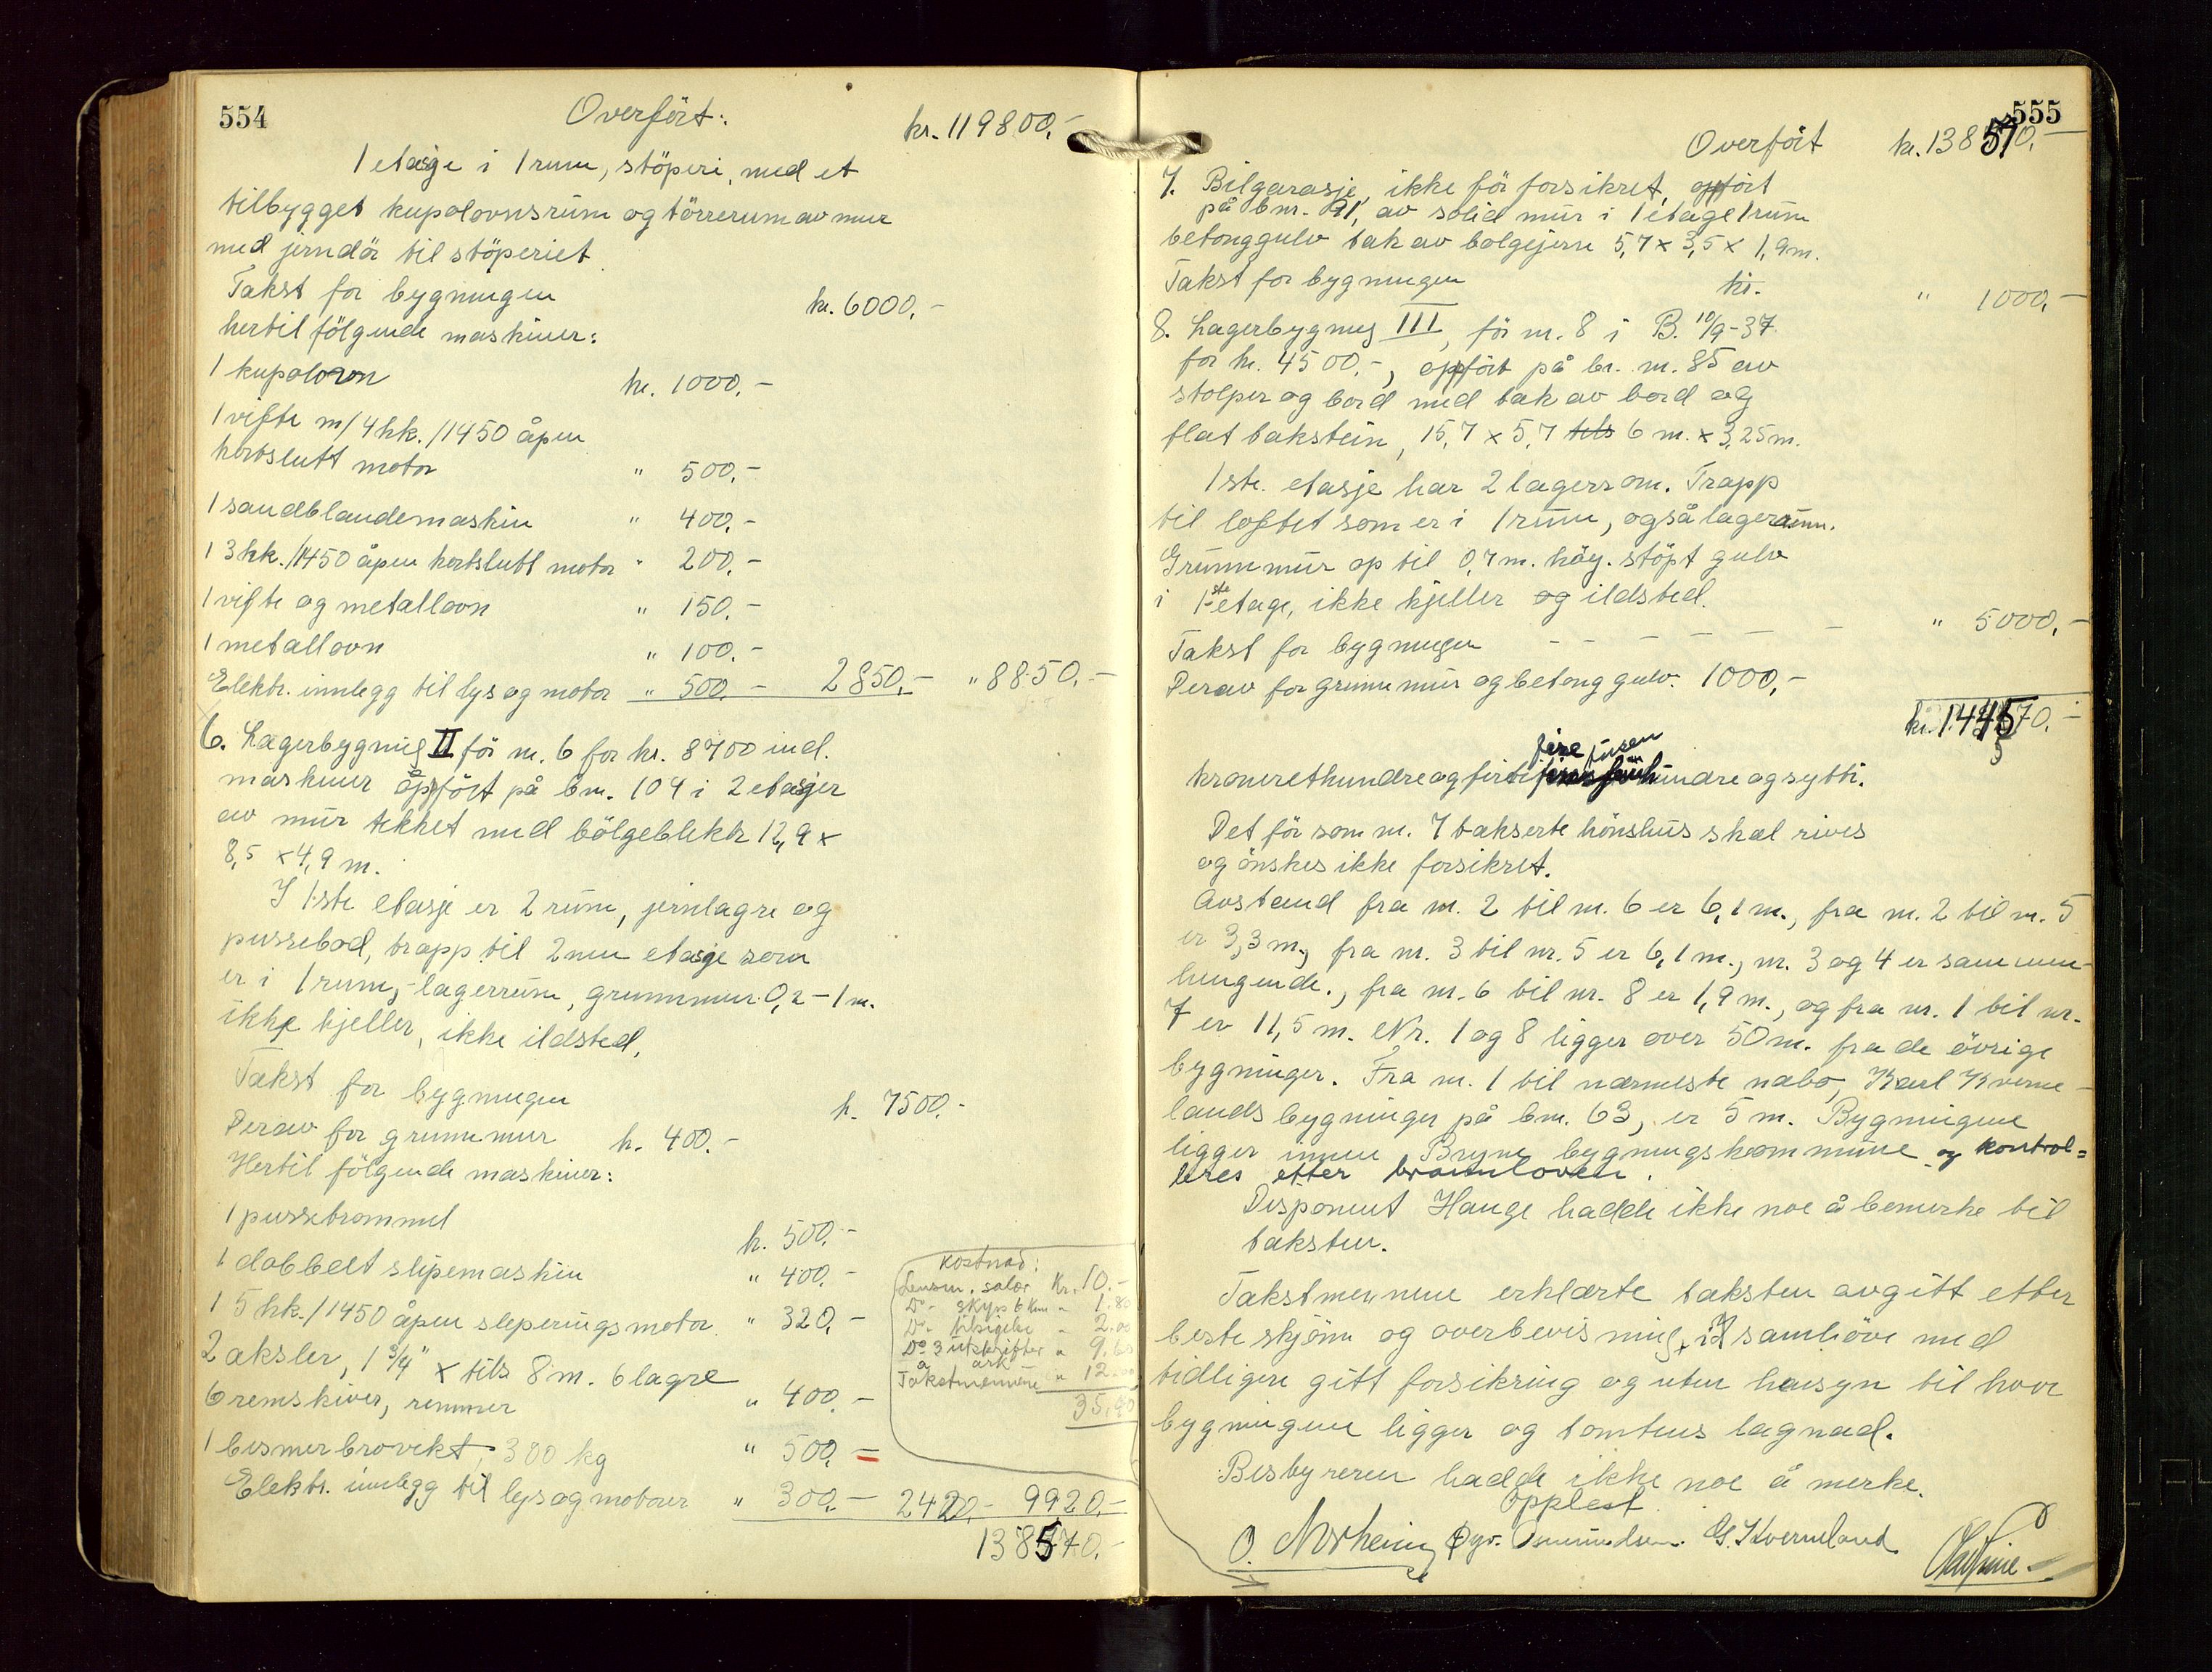 554
Overfört:
kr. 119800,-
1 etasje i 1 rum, stöperi, med et
tilbygget kupolovnsrum og törrerum av mur
med jerndör til stöperiet.
Takst for bygningen kr. 6000,-
hertil fölgende maskiner:
1 kupolovn kr. 1000,-
1 vifte m/ 4 hk. /1450 åpen
kortslutt motor " 500,-
1 sandblandemaskin " 400,-
1 3 hk. /1450 åpen kortslutt motor " 200,-
1 vifte og metallovn " 150,-
1 metallovn " 100,-
Elektr. innlegg til lys og motor " 500,- 2850,- " 8850,-
6. Lagerbygning II för nr. 6 for kr. 8700 incl.
maskiner oppfört på bnr. 109 i 2 etasjer
av mur tekket med bölgeblekk 12,9 x
8,5 x 4,9 m.
I 1ste etasje er 2 rum, jernlagre og
pussebod, trapp til 2nen etasje som
er i 1 rum, - lagerrum, grunnmur 0,2 - 1 m.
ikke kjeller, ikke ildsted.
Takst for bygningen k. 7500,-
Derav for grunnmur k. 400.-
Hertil fölgende maskiner:
1 pussetrommel k. 500,-
1 dobbelt slipemaskin " 400,-
1 5 hk. /1450 åpen sleperingsmotor " 320,-
2 aksler, 1 3/4" x tils 8 m. 6 lagre
6 remskiver, remmer " 400,-
1 bismerbrovekt, 300 kg " 500,=
Elektr. innlegg til lys og motorer " 300,- 2420,- 9920,-
138570,-
Kostnad:
Lensm. salær Kr. 10.-
Do - skyss 6 km " 1.80
Do - tilsigelse " 2.00
Do 3 utskrifter " 9.60
à ark
Takstmennene " 12.00
35,40
555
Overfört kr. 138570,-
7. Bilgarasje, ikke för forsikret, oppfört
på bnr. 91, av solid mur i 1 etage 1 rum
betonggulv tak av bolgejern 5,7 x 3,5 x 1,9 m.
Takst for bygningen kr. " 1000,-
8. Lagerbygning III, för nr. 8 i B. 10/9-37
for kr. 4500.-, oppfört på br. nr. 85 av
stolper og bord med tak av bord og
flat takstein, 15,7 x 5,7 tils 6 m. x 3,25 m.
1ste. etasje har 2 lagerrom. Trapp
til loftet som er i 1 rum, også lagerrum.
Grunnmur op til 0,7 m. höy. stöpt gulv
i 1ste etage, ikke kjeller og ildsted.
Takst for bygningen - - - - - - " 5000,-
Derav for grunnmur og betonggulv. 1000,-
kr. 144570,-
fire tusen
kroneretthundreogførti hundre og sytti.
Det för som nr. 7 takserte hönshus skal rives
og önskes ikke forsikret.
Avstand fra nr. 2 til nr. 6 er 6,1 m., fra nr. 2 til nr. 5
er 3,3 m, fra nr. 3 til nr. 5 er 6,1 m., nr. 3 og 4 er sammen-
hengende., fra nr. 6 til nr. 8 er 1,9 m., og fra nr. 1 til nr.
7 er 11,5 m. Nr. 1 og 8 ligger over 50 m. fra de övrige
bygninger. Fra nr. 1 til nærmeste nabo, Karl Kverne-
lands bygninger på bnr. 63, er 5 m. Bygningene
ligger innen Bryne bygningskommune og kontrol=
leres etter brannloven.
Disponent Hauge hadde ikke noe å bemerke til
taksten.
Takstmennene erklærte taksten avgitt etter
beste skjönn og overbevisning, i samhöve med
tidligere gitt forsikring og uten hensyn til hvor
bygningene ligger og tomtens lagnad.
Bestyreren hadde ikke noe å merke.
Opplest.
O. Norheim Gyr. Osmundsen. G. Kverneland